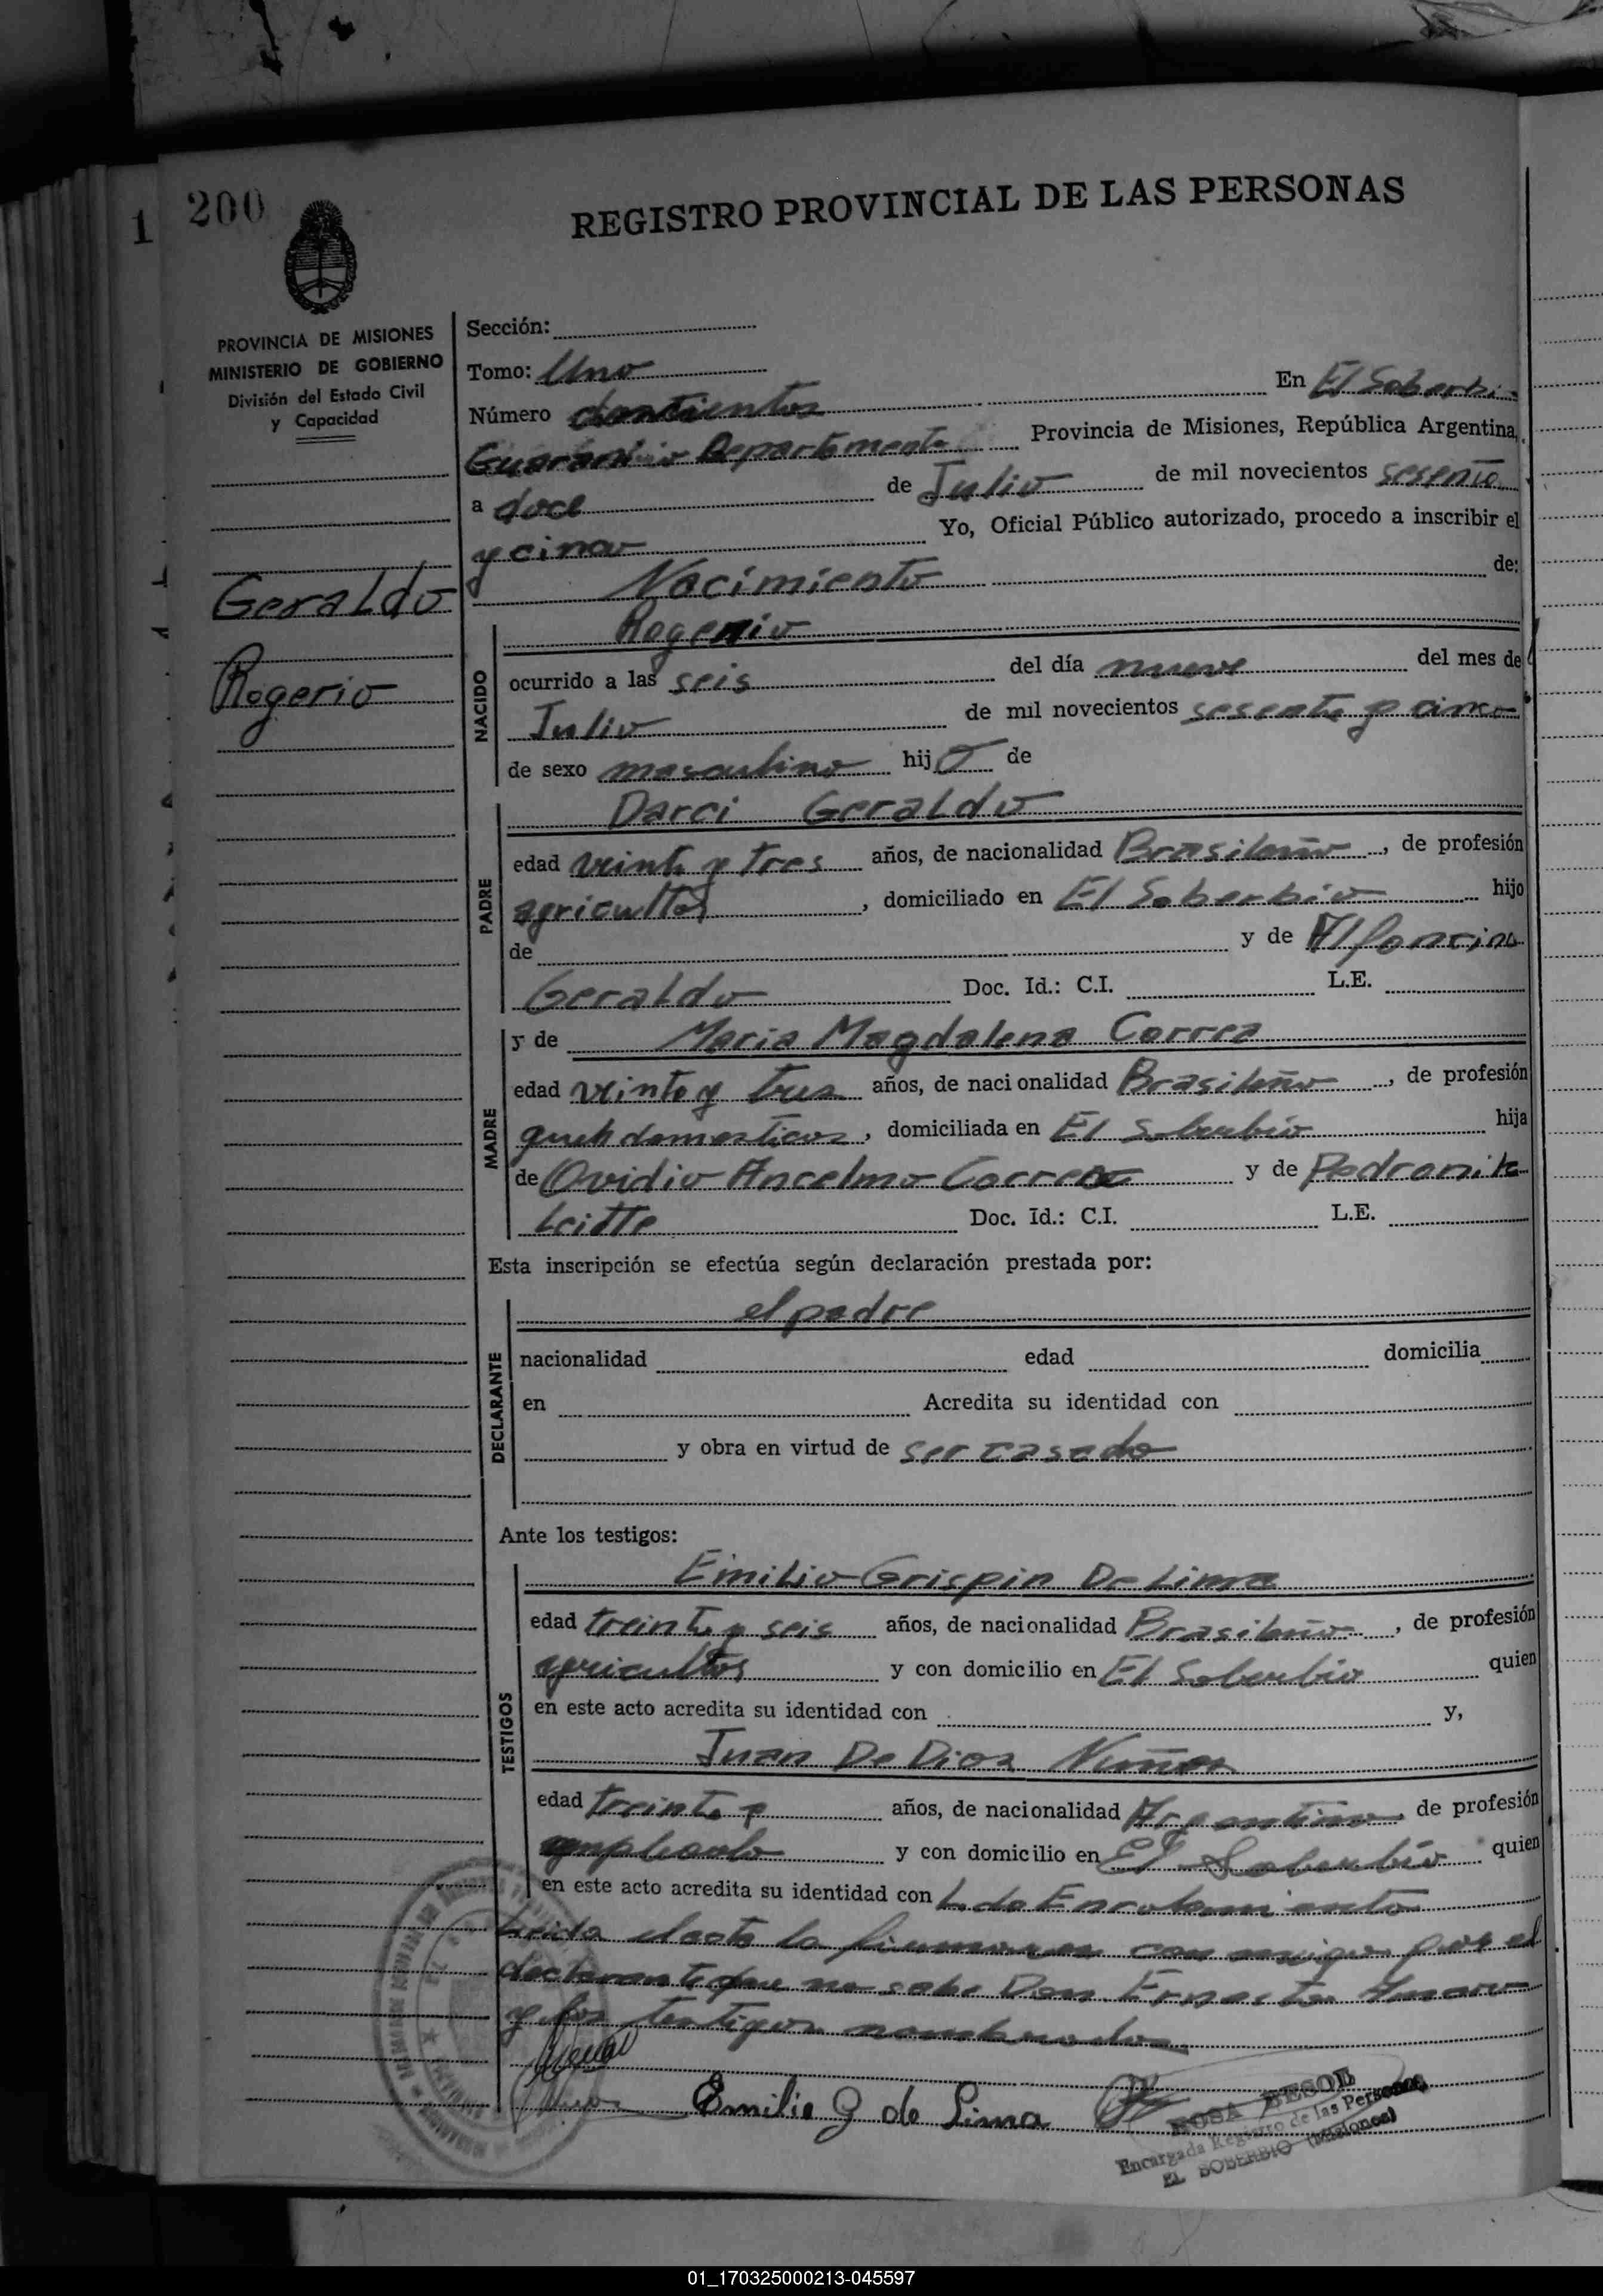 200
1
REGISTRO PROVINCIAL DE LAS PERSONAS
PROVINCIA DE MISIONES
MINISTERIO DE GOBIERNO
División del Estado Civil
y Capacidad
Geraldo
Rogerio
Sección:
Tomo: Uno
Número doscientos En El Soberbio
Guarani Departamento Provincia de Misiones, República Argentina,
a doce de Julio de mil novecientos sesenta
y cinco Yo, Oficial Público autorizado, procedo a inscribir el
Nacimiento de:
NACIDO
Rogerio
ocurrido a las seis del día nueve del mes de
Julio de mil novecientos sesenta y cinco
de sexo masculino hijo de
PADRE
Darci Geraldo
edad veinte y tres años, de nacionalidad Brasileño, de profesión
agricultor, domiciliado en El Soberbio hijo
de y de Alfoncina
Geraldo Doc. Id.: C.I. L.E.
MADRE
y de Maria Magdalena Correa
edad veinte y tres años, de nacionalidad Brasileño, de profesión
domesticos, domiciliada en El Soberbio hija
de Ovidio Ancelmo Correa y de Pedronila
Leitte Doc. Id.: C.I. L.E.
Esta inscripción se efectúa según declaración prestada por:
DECLARANTE
el padre
nacionalidad edad domicilia
en Acredita su identidad con
y obra en virtud de ser casado
Ante los testigos:
TESTIGOS
Emilio Grispin De Lima
edad treinta y seis años, de nacionalidad Brasileño, de profesión
agricultor y con domicilio en El Soberbio quien
en este acto acredita su identidad con y,
Juan De Dios Nuñez
edad treinta y años, de nacionalidad Argentino de profesión
empleado y con domicilio en El Soberbio quien
en este acto acredita su identidad con L. de Enrolamiento
Leida el acta la firmaron con migo por el
declarante que no sabe Don Ernesto Amaro
y los testigos nombrados
Emilio G de Lima
ROSA BESOL
Encargada Registro de las Personas
EL SOBERBIO (Misiones)
01_170325000213-045597